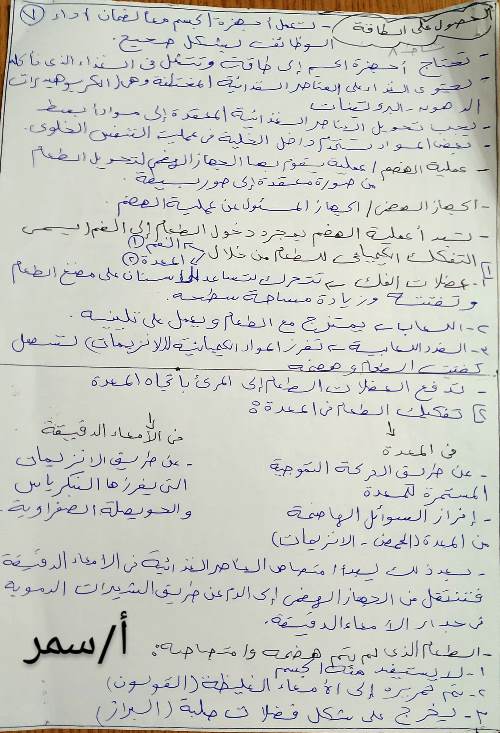 الحصول على الطاقة
- تعمل أجهزة الجسم معا لضمان أداء ①
الوظائف بشكل صحيح.
- تحتاج أجهزة الجسم إلى طاقة وتتمثل فى الغذاء الذى نأكله
- يحتوى الغذاء على العناصر الغذائية المختلفة وهى الكربوهيدرات
الدهون - البروتينات
- يجب تحويل العناصر الغذائية المعقدة إلى مواد أبسط
- بعض المواد يستخدم داخل الخلية فى عملية التنفس الخلوى.
- عملية الهضم / عملية يقوم بها الجهاز الهضمى لتحويل الطعام
من صورة معقدة إلى صور بسيطة.
- الجهاز الهضمى / الجهاز المسئول عن عملية الهضم
- تبدأ عملية الهضم بمجرد دخول الطعام إلى الفم (يسمى
1 التفكك الكيميائى للطعام من خلال الفم ① المعدة ②
1- عضلات الفك ← تتحرك لتساعد الأسنان على مضغ الطعام
وتفتته وزيادة مساحة سطحه.
2- اللعاب ← يمتزج مع الطعام ويعمل على تليينه
3- الغدد اللعابية ← تفرز المواد الكيميائية (الانزيمات) لتسهل
تفتت الطعام وهضمه
- تدفع العضلات الطعام إلى المرئ باتجاه المعدة
2 تفكيك الطعام فى المعدة:
فى المعدة
- عن طريق الحركة التموجية
المستمرة للمعدة
- إفراز السوائل الهاضمة
من المعدة (الحمض - الانزيمات)
فى الأمعاء الدقيقة
- عن طريق الانزيمات
التى يفرزها البنكرياس
والحويصلة الصفراوية.
- بعد ذلك يبدأ امتصاص العناصر الغذائية فى الامعاء الدقيقة
فتنتقل من الجهاز الهضمى إلى الدم عن طريق الشعيرات الدموية
فى جدار الأمعاء الدقيقة.
أ/سمر
- الطعام الذى لم يتم هضمه وامتصاصه:
1- لا يستفيد منه الجسم
2- يتم تمريره إلى الأمعاء الغليظة (القولون)
3- يخرج على شكل فضلات صلبة (البراز)